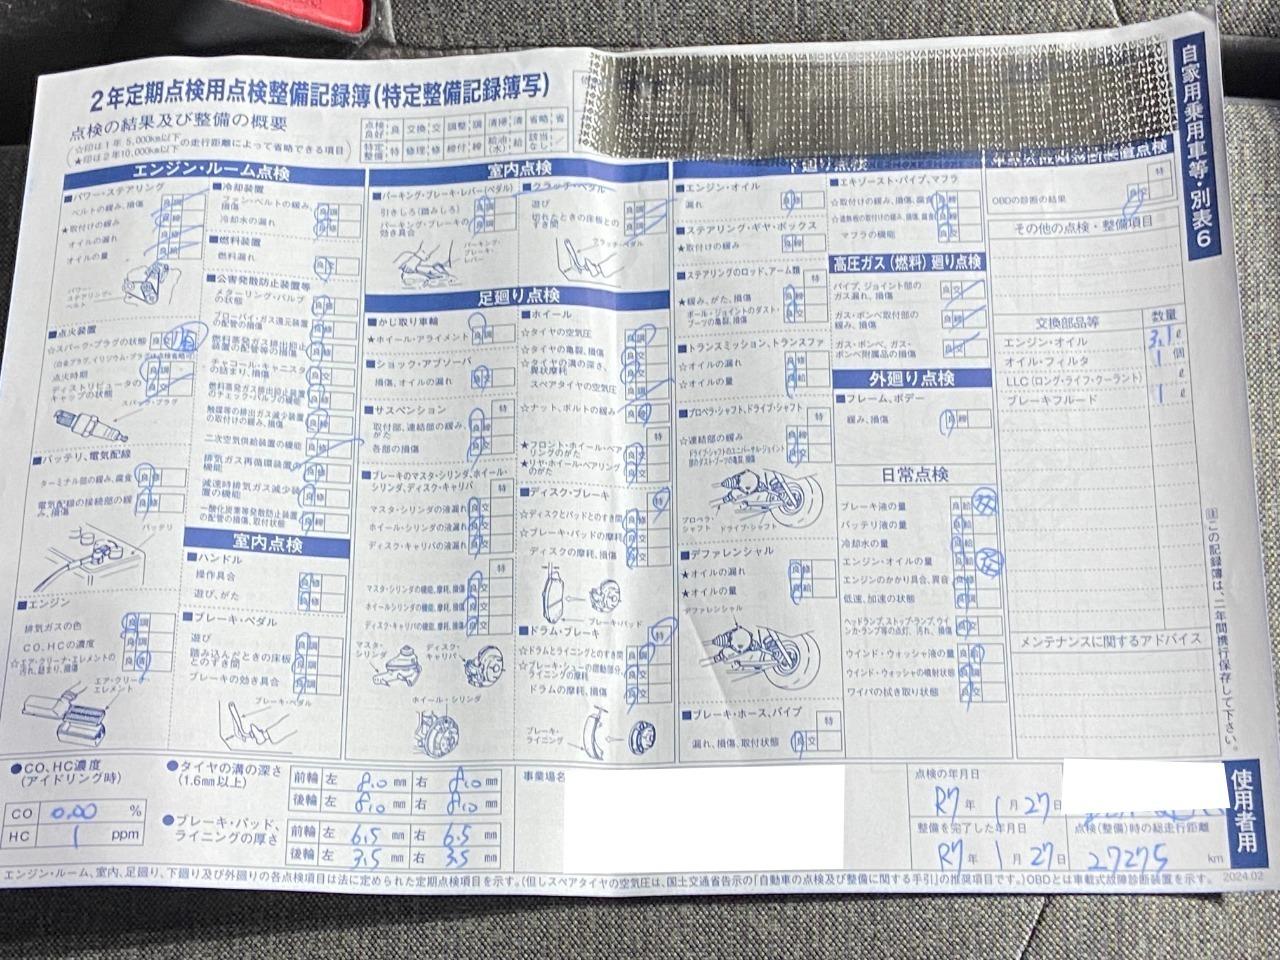 2年定期点検用点検整備記録簿(特定整備記録簿写)
点検の結果及び整備の概要
☆印は1年 5,000km以下
★印は2年10,000km以下
の走行距離によって省略できる項目
自家用乗用車等・別表6
エンジン・ルーム点検
■パワー・ステアリング
ベルトの緩み、損傷
★取付けの緩み
オイルの漏れ
オイルの量
パワー・ステアリング・ベルト
■点火装置
☆スパーク・プラグの状態
点火時期
ディストリビュータのキャップの状態
スパーク・プラグ
■バッテリ、電気配線
ターミナル部の緩み、腐食
電気配線の接続部の緩み、損傷
バッテリ
■エンジン
排気ガスの色
CO、HCの濃度
☆エア・クリーナ・エレメントの汚れ、詰まり、損傷
エア・クリーナ・エレメント
■冷却装置
ファン・ベルトの緩み、損傷
冷却水の漏れ
■燃料装置
燃料漏れ
■公害発散防止装置等
メターリング・バルブの状態
ブローバイ・ガス還元装置の配管の損傷
燃料蒸発ガス排出抑止装置の配管等の損傷
チャコール・キャニスタの詰まり、損傷
燃料蒸発ガス排出抑止装置のチェック・バルブの機能
触媒等の排出ガス減少装置の取付けの緩み、損傷
二次空気供給装置の機能
排気ガス再循環装置の機能
減速時排気ガス減少装置の機能
一酸化炭素等発散防止装置の配管の損傷、取付状態
室内点検
■ハンドル
操作具合
遊び、がた
■ブレーキ・ペダル
遊び
踏み込んだときの床板とのすき間
ブレーキの効き具合
ブレーキ・ペダル
室内点検
■パーキング・ブレーキ・レバー(ペダル)
引きしろ(踏みしろ)
パーキング・ブレーキの効き具合
パーキング・ブレーキ・レバー
■クラッチ・ペダル
遊び
切れたときの床板とのすき間
クラッチ・ペダル
足廻り点検
■かじ取り車輪
★ホイール・アライメント
■ショック・アブソーバ
損傷、オイルの漏れ
■サスペンション
取付部、連結部の緩み、がた
各部の損傷
■ブレーキのマスタ・シリンダ、ホイール・シリンダ、ディスク・キャリパ
マスタ・シリンダの液漏れ
ホイール・シリンダの液漏れ
ディスク・キャリパの液漏れ
マスタ・シリンダの機能、摩耗、損傷
ホイールシリンダの機能、摩耗、損傷
ディスク・キャリパの機能、摩耗、損傷
マスタ・シリンダ
ディスク・キャリパ
ホイール・シリンダ
■ホイール
☆タイヤの空気圧
☆タイヤの亀裂、損傷
☆タイヤの溝の深さ、異状摩耗
スペアタイヤの空気圧
☆ナット、ボルトの緩み
★フロント・ホイール・ベアリングのがた
★リヤ・ホイール・ベアリングのがた
■ディスク・ブレーキ
☆ディスクとパッドとのすき間
☆ブレーキ・パッドの摩耗
ディスクの摩耗、損傷
ブレーキ・パッド
■ドラム・ブレーキ
☆ドラムとライニングとのすき間
☆ブレーキ・シューの摺動部分、ライニングの摩耗
ドラムの摩耗、損傷
ブレーキ・ライニング
下廻り点検
■エンジン・オイル
漏れ
■ステアリング・ギヤ・ボックス
★取付けの緩み
■ステアリングのロッド、アーム類
★緩み、がた、損傷
ボール・ジョイントのダスト・ブーツの亀裂、損傷
■トランスミッション、トランスファ
☆オイルの漏れ
☆オイルの量
■プロペラ・シャフト、ドライブ・シャフト
☆連結部の緩み
ドライブ・シャフトのユニバーサル・ジョイント部のダスト・ブーツの亀裂、損傷
プロペラ・シャフト
ドライブ・シャフト
■デファレンシャル
★オイルの漏れ
★オイルの量
デファレンシャル
■ブレーキ・ホース、パイプ
漏れ、損傷、取付状態
■エキゾースト・パイプ、マフラ
☆取付けの緩み、損傷、腐食
☆遮熱板の取付けの緩み、損傷、腐食
マフラの機能
高圧ガス(燃料)廻り点検
パイプ、ジョイント部のガス漏れ、損傷
ガス・ボンベ取付部の緩み、損傷
ガス・ボンベ、ガス・ボンベ附属品の損傷
外廻り点検
■フレーム、ボデー
緩み、損傷
日常点検
ブレーキ液の量
バッテリ液の量
冷却水の量
エンジン・オイルの量
エンジンのかかり具合、異音
低速、加速の状態
ヘッドランプ、ストップ・ランプ、ウインカ・ランプ等の点灯、汚れ、損傷
ウインド・ウォッシャ液の量
ウインド・ウォッシャの噴射状態
ワイパの拭き取り状態
OBDの診断の結果
その他の点検・整備項目
交換部品等 数量
エンジン・オイル 3.1 ℓ
オイル・フィルタ 1 個
LLC(ロング・ライフ・クーラント) ℓ
ブレーキフルード 1 ℓ
メンテナンスに関するアドバイス
注 この記録簿は、二年間携行保存して下さい。
使用者用
●CO、HC濃度(アイドリング時)
CO 0.00 %
HC 1 ppm
●タイヤの溝の深さ(1.6mm以上)
前輪 左 8.0 mm 右 8.0 mm
後輪 左 8.0 mm 右 8.0 mm
●ブレーキ・パッド、ライニングの厚さ
前輪 左 6.5 mm 右 6.5 mm
後輪 左 3.5 mm 右 3.5 mm
事業場名
点検の年月日
R7年 1月 27日
整備を完了した年月日
R7年 1月 27日
点検(整備)時の総走行距離
27275 km
エンジン・ルーム、室内、足廻り、下廻り及び外廻りの各点検項目は法に定められた定期点検項目を示す。(但しスペアタイヤの空気圧は、国土交通省告示の「自動車の点検及び整備に関する手引」の推奨項目です。)OBDとは車載式故障診断装置を示す。 2024.02